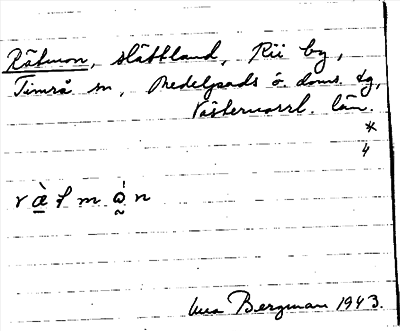 Rätmon, slättland, Rii by,
Timrå sn, Medelpads ö. doms. tg,
Västernorrl. län.
*
4
r æ̀ t m ò̰ n
Bergman 1943.